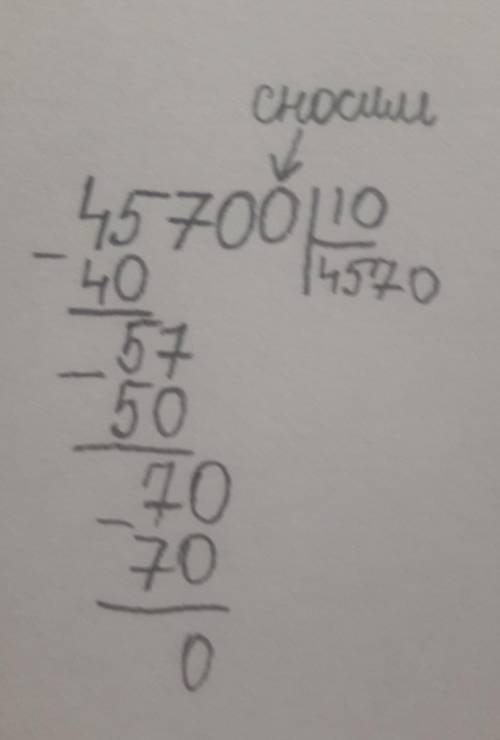 сносим
45700 | 10
- 40 | 4570
57
- 50
70
- 70
0